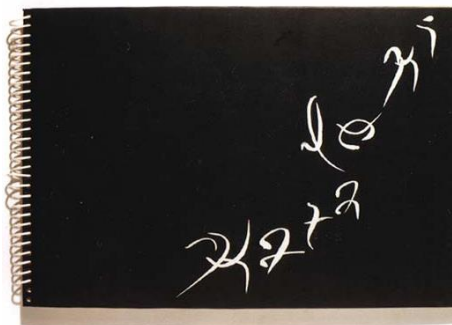 Kata
lexi